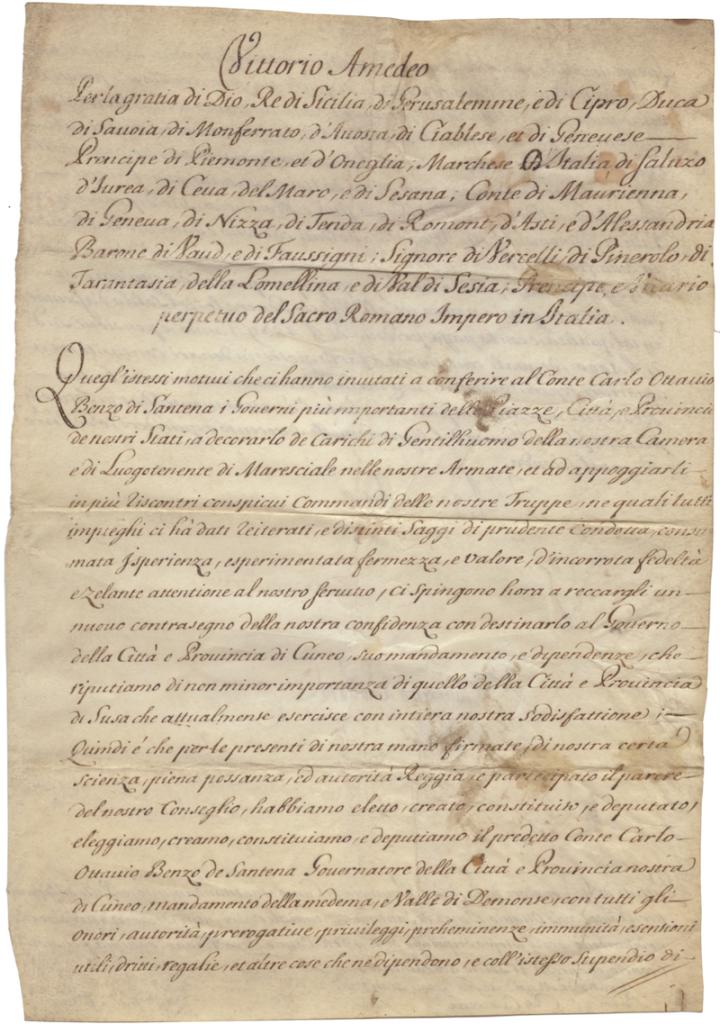 Vittorio Amedeo
Per la gratia di Dio, Re di Sicilia, di Gerusalemme, e di Cipro, Duca
di Savoia, di Monferrato, d'Avosta, di Ciablese, et di Genevese
Prencipe di Piemonte, et d'Oneglia, Marchese D'Italia, di Saluzo
d'Ivrea, di Ceva, del Maro, e di Sesana; Conte di Maurienna,
di Geneva, di Nizza, di Tenda, di Romont, d'Asti, e d'Alessandria
Barone di Vaud, e di Faussigni; Signore di Vercelli, di Pinerolo, di
Tarantasia, della Lomellina, e di Val di Sesia; Prencipe, e Vicario
perpetuo del Sacro Romano Impero in Italia.
Quegl'istessi motivi che ci hanno invitati a conferire al Conte Carlo Ottavio
Benzo di Santena i Governi più importanti delle Piazze, Città, e Provincie
de nostri Stati, a decorarlo de Carichi di Gentilhuomo della nostra Camera
e di Luogotenente di Maresciale nelle nostre Armate, et ad appoggiarli
in più riscontri conspicui Commandi delle nostre Truppe, ne quali tutti
impieghi ci hà dati reiterati, e distinti saggi di prudente Condotta, consu
mata Isperienza, esperimentata fermezza, e valore, d'incorrota fedeltà
e zelante attentione al nostro servitio, ci spingono hora a reccargli un
nuovo contrasegno della nostra confidenza con destinarlo al Governo
della Città e Provincia di Cuneo, suo mandamento, e dipendenze, che
riputiamo di non minor importanza di quello della Città e Provincia
di Susa che attualmente esercisce con intiera nostra sodisfattione;
Quindi é che per le presenti di nostra mano firmate, di nostra certa
scienza, piena possanza, ed autorità Reggia, e partecipato il parere
del nostro Conseglio, habbiamo eletto, creato, constituito, e deputato,
eleggiamo, creamo, constituiamo, e deputiamo il predetto Conte Carlo
Ottavio Benzo de Santena Governatore della Città e Provincia nostra
di Cuneo, mandamento della medema, e Valle di Demonte, con tutti gli
onori, autorità, prerogative, privileggi, preheminenze, immunità, esentioni
utili, dritti, regalie, et altre cose che ne dipendono, e coll'istesso stipendio di